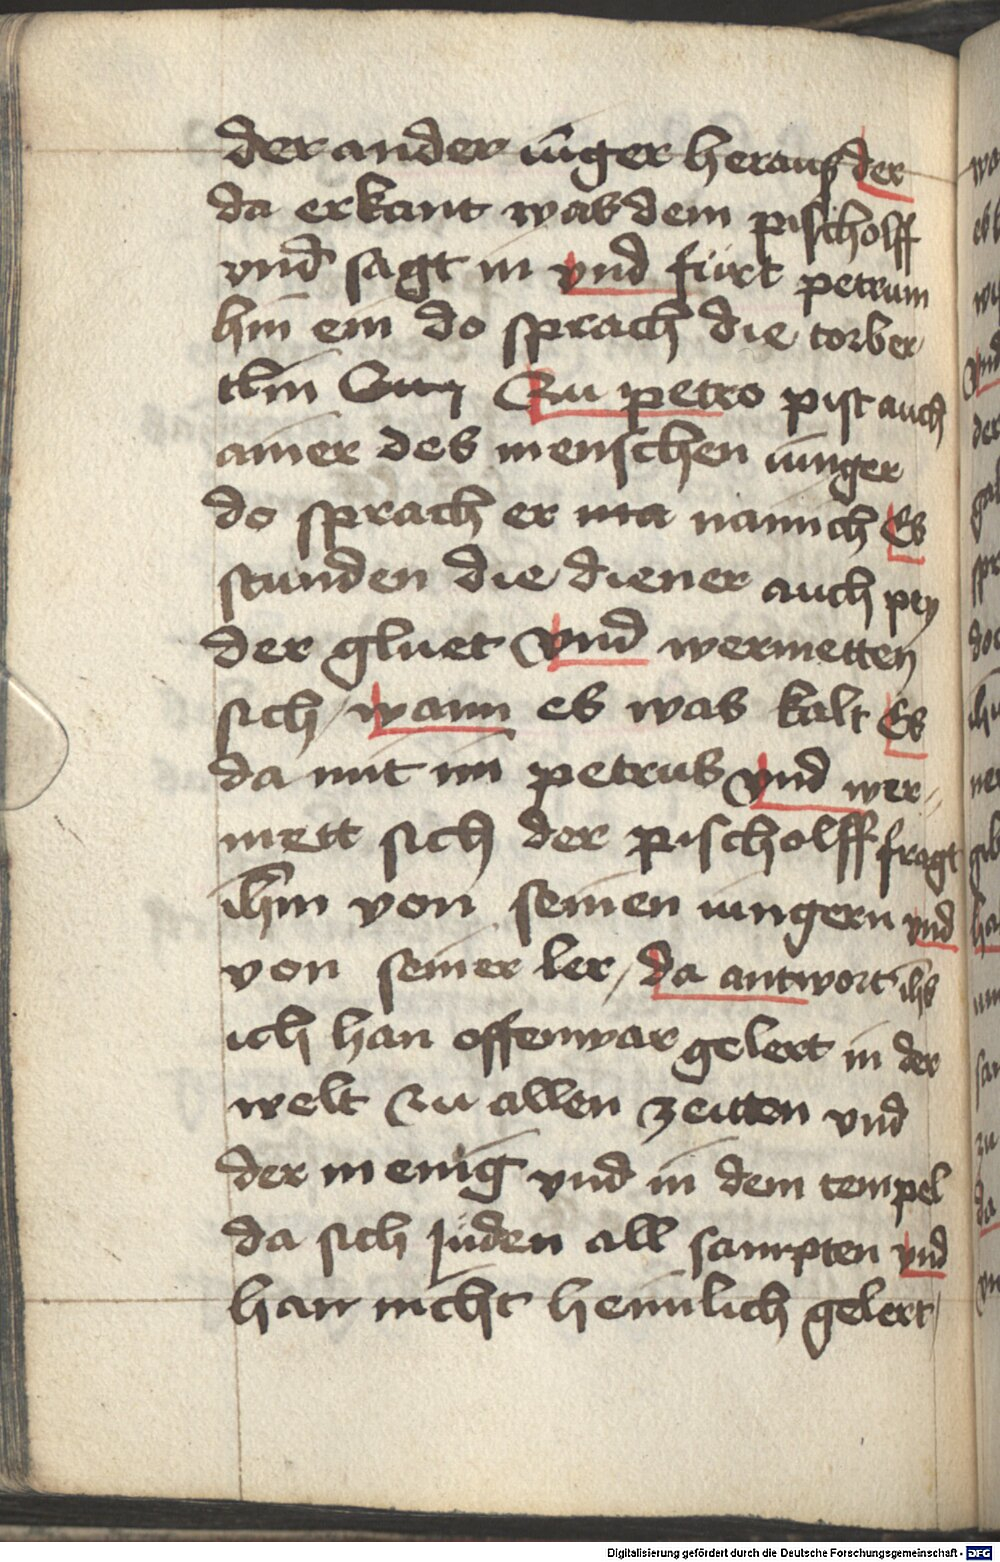 der ander iu̅ger heraus der
da erkant was dem pischolff
vnd sagt in vnd fürt petrum
hin ein do sprach die torber
tlin Zu petro pist auch
ainer des menschen iunger
do sprach er na nain ich Es
stunden die diener auch pey
der gluet Vnd wermetten
sich / wann es was kalt Es
da mit im petrus vnd wer„
mett sich der pischolff fragt
ihm von seinen iungern vnd
von seiner ler / da antwort ihs
ich han offenwar gelert in der
welt zu allen zeitten vnd
der menig vnd in dem tempel
da sich juden all sampten vnd
han nicht heimlich gelert /
Digitalisierung gefördert durch die Deutsche Forschungsgemeinschaft - DFG